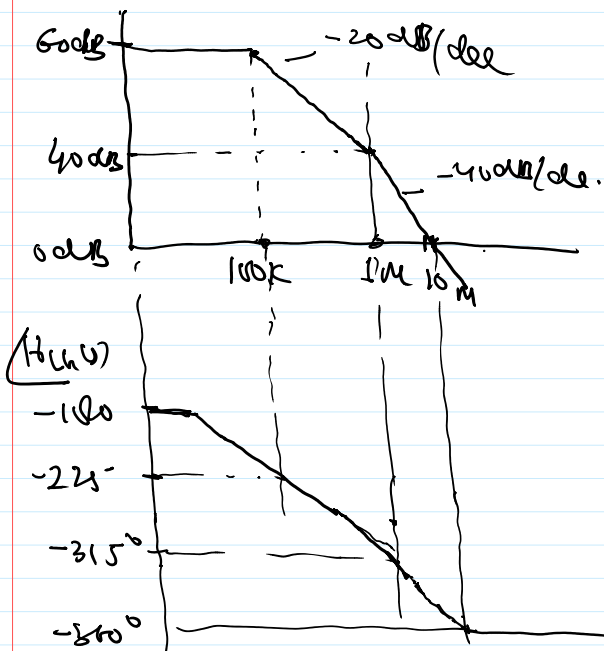 60dB
-20dB/dec
40dB
-40dB/de.
0dB
100K
1M
10M
-180
-225°
-315°
-360°